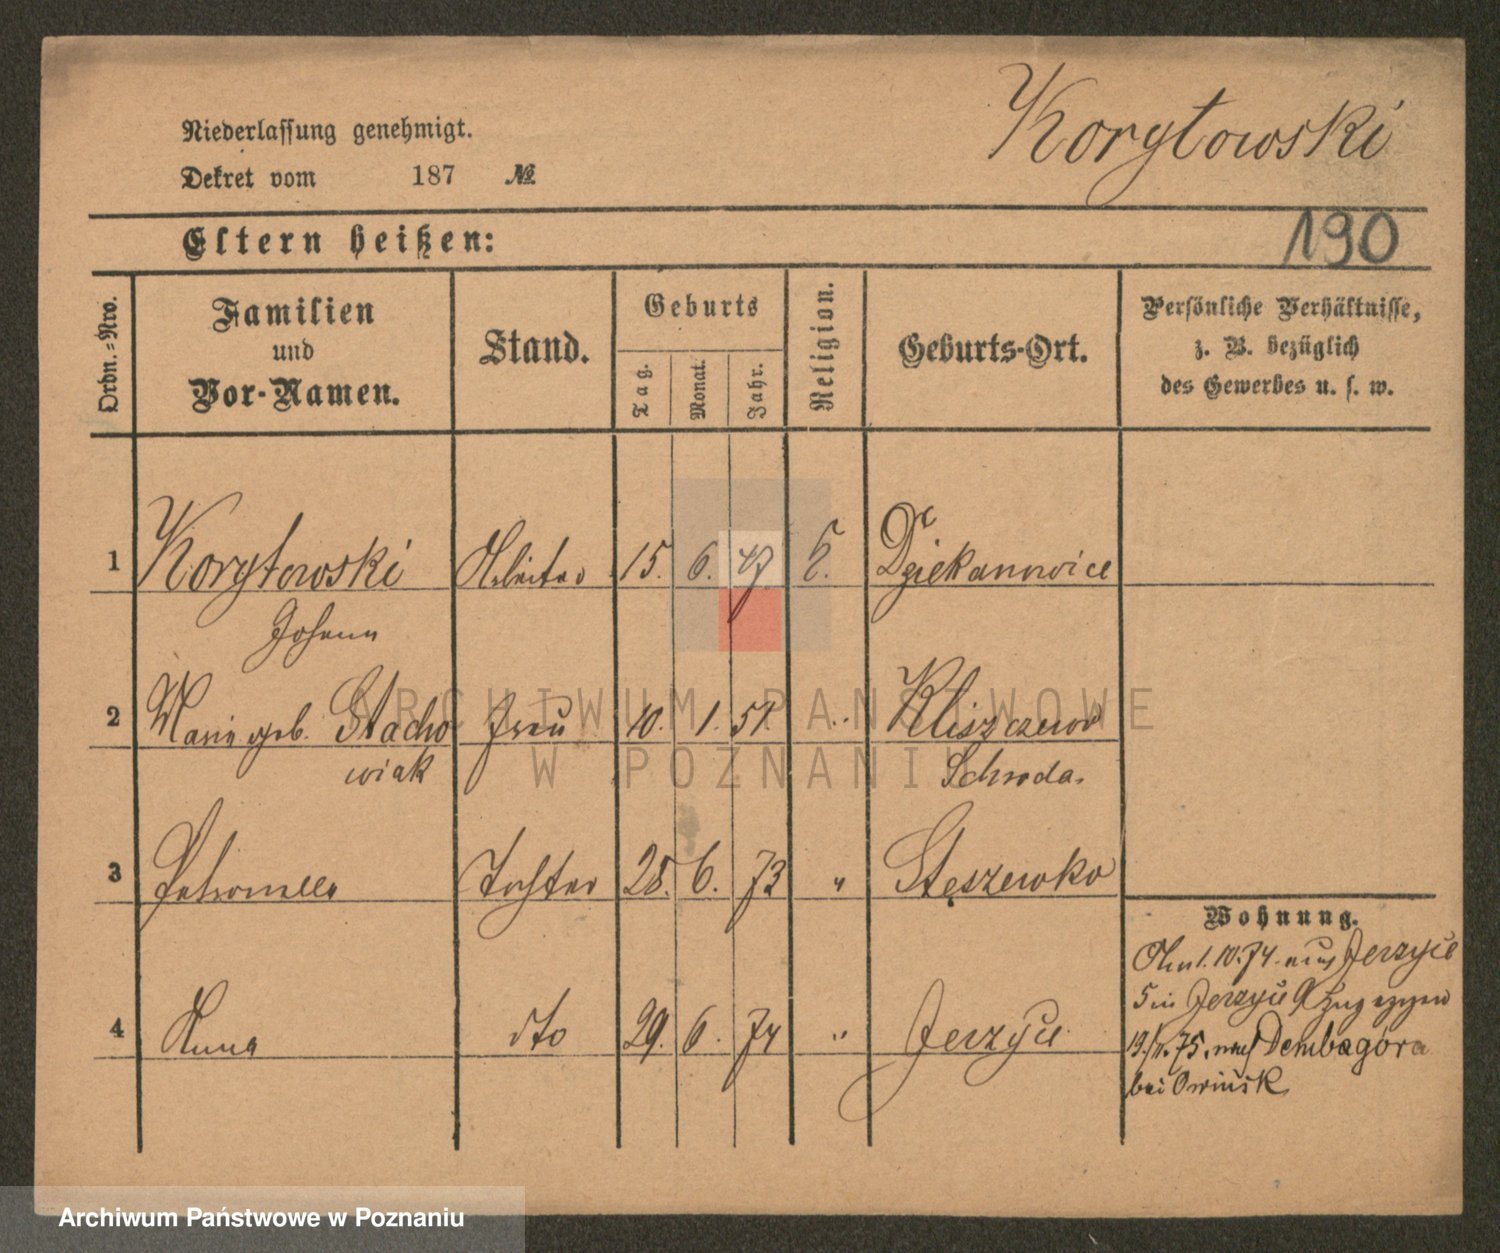 Korytowski
Niederlassung genehmigt.
Dekret vom 187 №
190
Eltern heißen:
Ordn.=Nro.
Familien
und
Vor-Namen.
Stand.
Geburts
Tag.
Monat.
Jahr.
Religion.
Geburts-Ort.
Persönliche Verhältnisse,
z. B. bezüglich
des Gewerbes u. s. w.
1 Korytowski Arbeiter 15. 6. 47 k. Dziekanowice
Johann
2 Maria geb. Stacho Frau 10. 1. 51. " Kliszczewo
wiak Schroda.
3 Petronella Tochter 28. 6. 73 " Stęszewko
4 Anna dto 29. 6. 74 " Jerzyce
Wohnung.
1. 10. 74. aus Jerzyce
5 in Jerzyce
75. nach Dembagora
bei Owinsk
ARCHIWUM PAŃSTWOWE
W POZNANIU
Archiwum Państwowe w Poznaniu